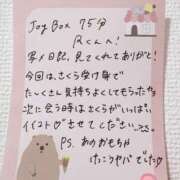 Joy Box 75分
Rくんへ!
写メ日記、見てくれてありがと!
今回は、さくら受け身で
たくさん気持ちよくしてもらったから
次に会う時はさくらがいっぱい
イカせてさせてください
P.S. あのおもちゃ
けっこうヤバでした